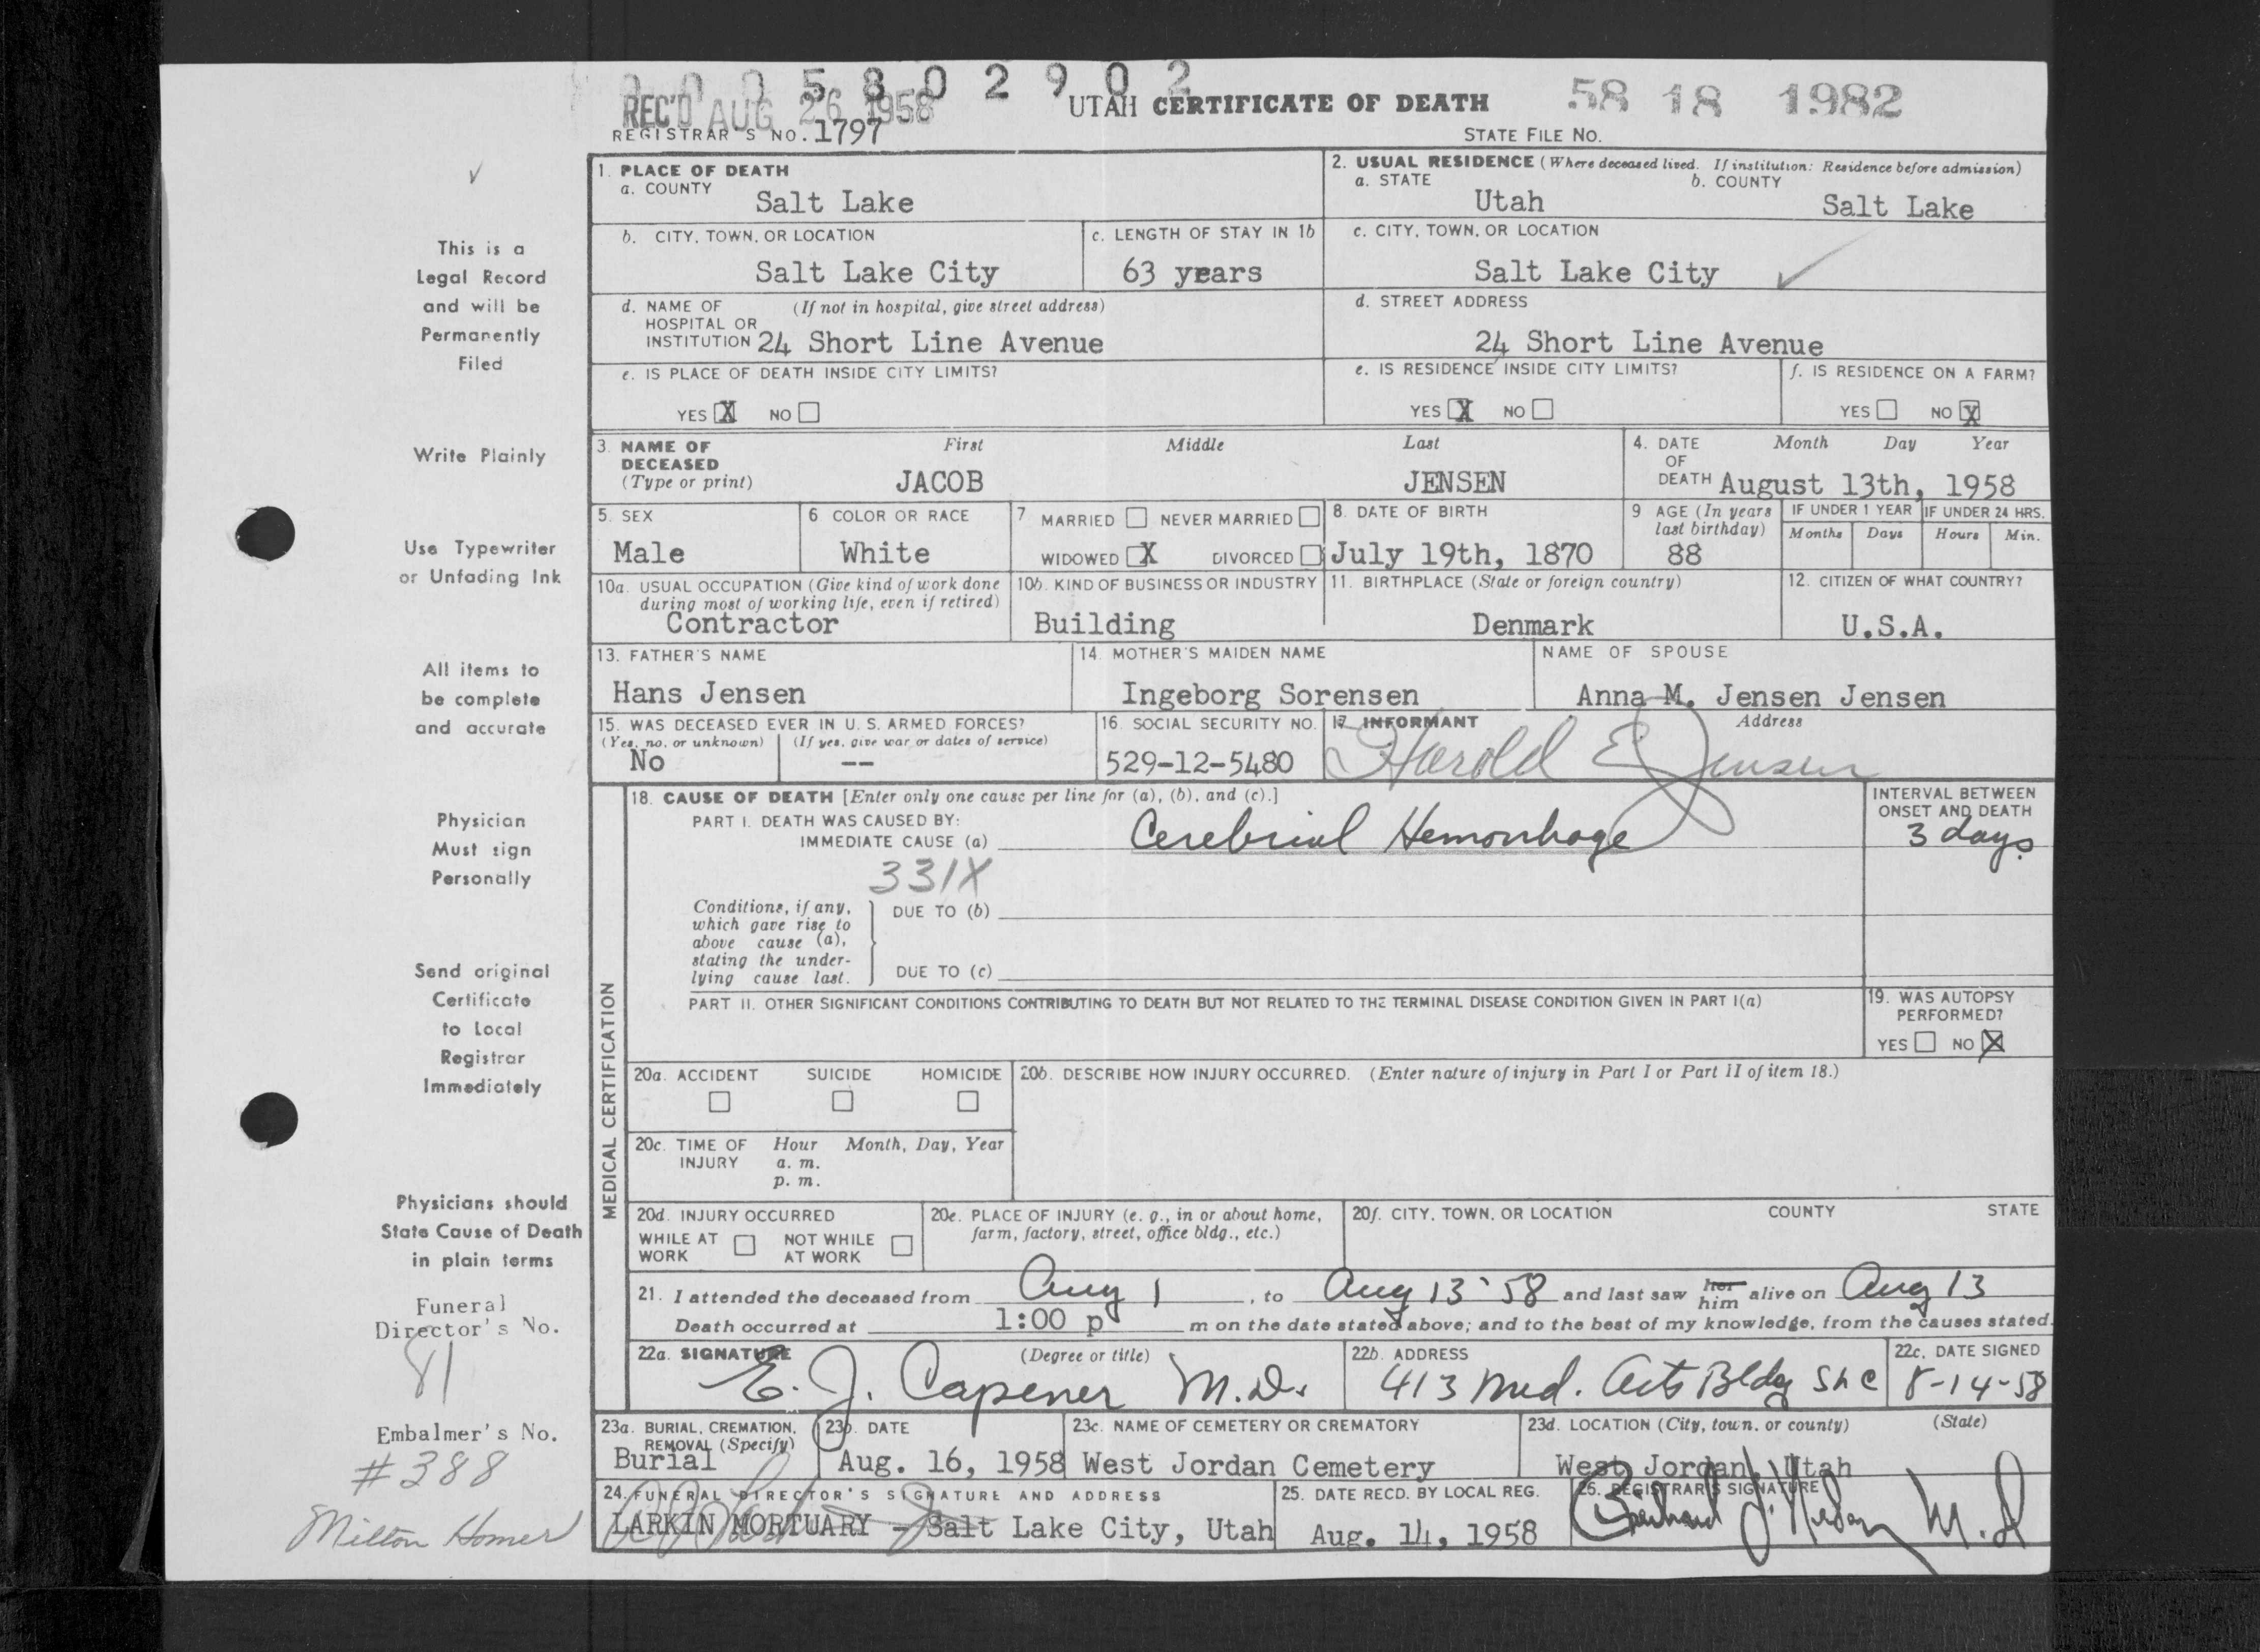 0 0 0 5 8 0 2 9 0 2
REC'D AUG 26 1958
UTAH CERTIFICATE OF DEATH 58 18 1982
REGISTRAR'S NO. 1797 STATE FILE NO.
✓
This is a
Legal Record
and will be
Permanently
Filed
Write Plainly
Use Typewriter
or Unfading Ink
All items to
be complete
and accurate
Physician
Must sign
Personally
Send original
Certificate
to Local
Registrar
Immediately
Physicians should
State Cause of Death
in plain terms
Funeral
Director's No.
81
Embalmer's No.
#388
Milton Homer
1. PLACE OF DEATH
a. COUNTY
Salt Lake
2. USUAL RESIDENCE (Where deceased lived. If institution: Residence before admission)
a. STATE b. COUNTY
Utah Salt Lake
b. CITY, TOWN, OR LOCATION
Salt Lake City
c. LENGTH OF STAY IN 1b
63 years
c. CITY, TOWN, OR LOCATION
Salt Lake City ✓
d. NAME OF (If not in hospital, give street address)
HOSPITAL OR
INSTITUTION 24 Short Line Avenue
d. STREET ADDRESS
24 Short Line Avenue
e. IS PLACE OF DEATH INSIDE CITY LIMITS?
YES X NO
e. IS RESIDENCE INSIDE CITY LIMITS?
YES X NO
f. IS RESIDENCE ON A FARM?
YES NO X
3. NAME OF First Middle Last
DECEASED
(Type or print) JACOB JENSEN
4. DATE Month Day Year
OF
DEATH August 13th, 1958
5. SEX
Male
6 COLOR OR RACE
White
7 MARRIED NEVER MARRIED
WIDOWED X DIVORCED
8. DATE OF BIRTH
July 19th, 1870
9 AGE (In years
last birthday)
88
IF UNDER 1 YEAR IF UNDER 24 HRS.
Months Days Hours Min.
10a. USUAL OCCUPATION (Give kind of work done
during most of working life, even if retired)
Contractor
10b. KIND OF BUSINESS OR INDUSTRY
Building
11. BIRTHPLACE (State or foreign country)
Denmark
12. CITIZEN OF WHAT COUNTRY?
U.S.A.
13. FATHER'S NAME
Hans Jensen
14. MOTHER'S MAIDEN NAME
Ingeborg Sorensen
NAME OF SPOUSE
Anna M. Jensen Jensen
15. WAS DECEASED EVER IN U. S. ARMED FORCES?
(Yes, no, or unknown) (If yes, give war or dates of service)
No --
16. SOCIAL SECURITY NO.
529-12-5480
17. INFORMANT Address
Harold E Jensen
MEDICAL CERTIFICATION
18. CAUSE OF DEATH [Enter only one cause per line for (a), (b), and (c).]
PART I. DEATH WAS CAUSED BY:
IMMEDIATE CAUSE (a) Cerebrial Hemorrhage
INTERVAL BETWEEN
ONSET AND DEATH
3 days
331X
Conditions, if any,
which gave rise to
above cause (a),
stating the under-
lying cause last.
DUE TO (b)
DUE TO (c)
PART II. OTHER SIGNIFICANT CONDITIONS CONTRIBUTING TO DEATH BUT NOT RELATED TO THE TERMINAL DISEASE CONDITION GIVEN IN PART I(a)
19. WAS AUTOPSY
PERFORMED?
YES NO X
20a. ACCIDENT SUICIDE HOMICIDE
20b. DESCRIBE HOW INJURY OCCURRED. (Enter nature of injury in Part I or Part II of item 18.)
20c. TIME OF Hour Month, Day, Year
INJURY a. m.
p. m.
20d. INJURY OCCURRED
WHILE AT NOT WHILE
WORK AT WORK
20e. PLACE OF INJURY (e. g., in or about home,
farm, factory, street, office bldg., etc.)
20f. CITY, TOWN, OR LOCATION COUNTY STATE
21. I attended the deceased from Aug 1, to Aug 13 '58 and last saw her him alive on Aug 13
Death occurred at 1:00 p m on the date stated above; and to the best of my knowledge, from the causes stated.
22a. SIGNATURE (Degree or title)
E. J. Capener M.D.
22b. ADDRESS
413 Med. Arts Bldg SLC
22c. DATE SIGNED
8-14-58
23a. BURIAL, CREMATION,
REMOVAL (Specify)
Burial
23b. DATE
Aug. 16, 1958
23c. NAME OF CEMETERY OR CREMATORY
West Jordan Cemetery
23d. LOCATION (City, town, or county) (State)
West Jordan, Utah
24. FUNERAL DIRECTOR'S SIGNATURE AND ADDRESS
LARKIN MORTUARY - Salt Lake City, Utah
25. DATE RECD. BY LOCAL REG.
Aug. 14, 1958
26. REGISTRAR'S SIGNATURE
M.D